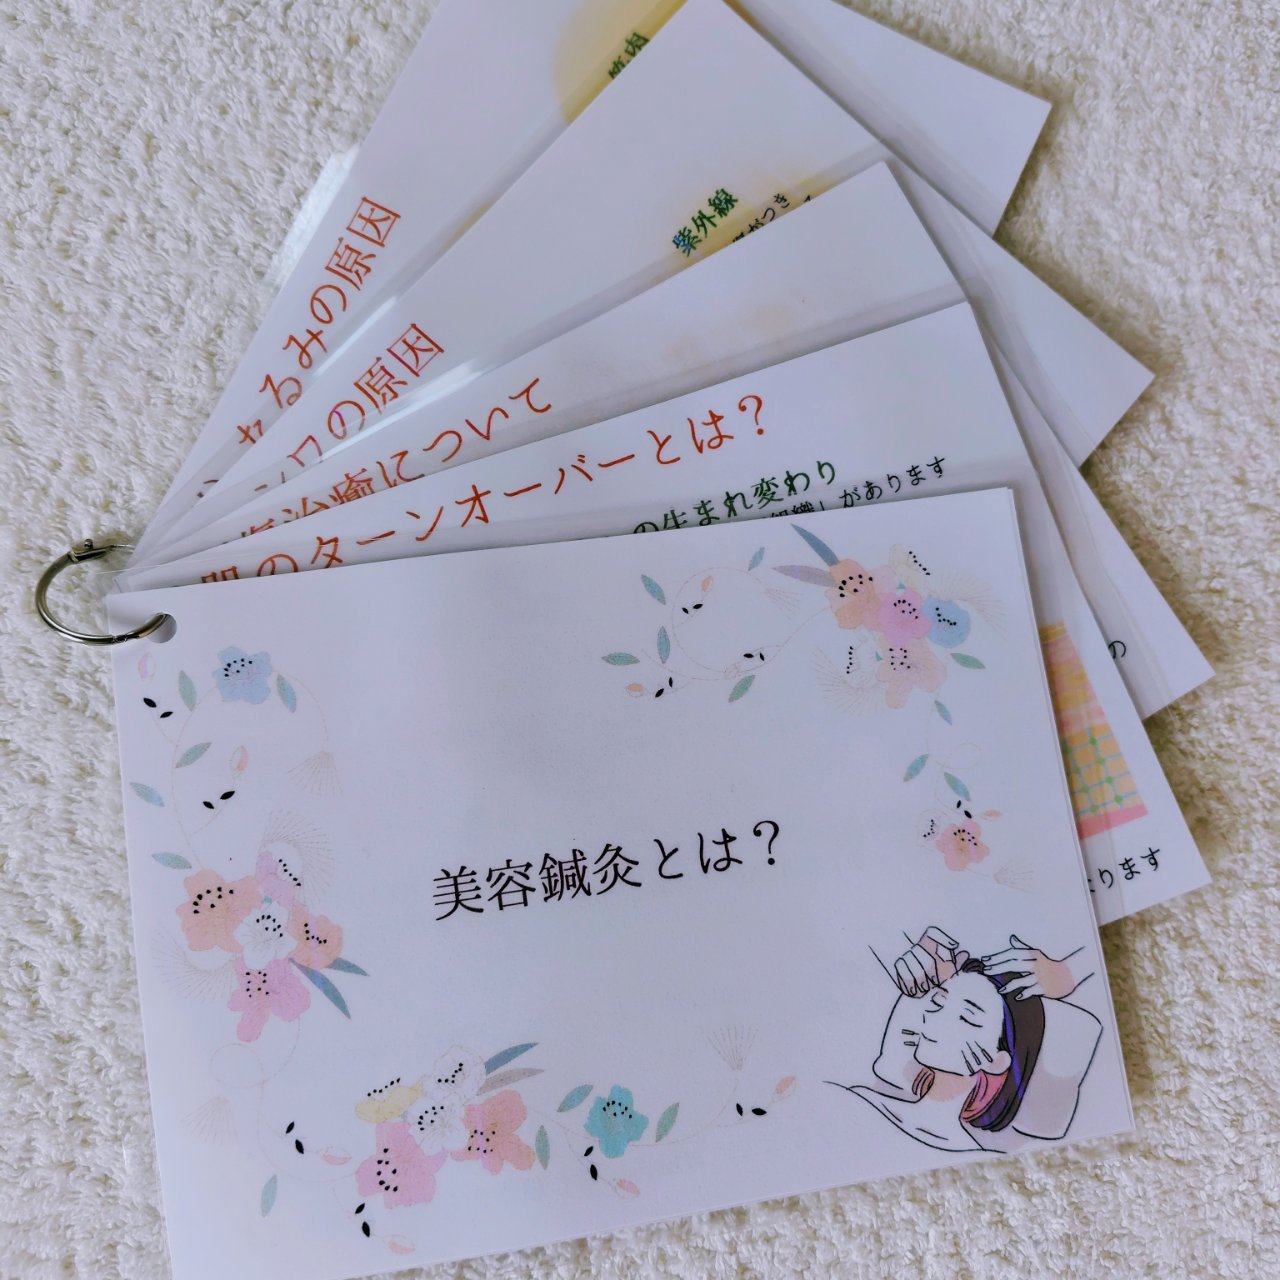 美容鍼灸とは？
肌のターンオーバーとは？
の生まれ変わり
組織」があります
ります
治癒について
の
シワの原因
紫外線
がつき
たるみの原因
筋肉